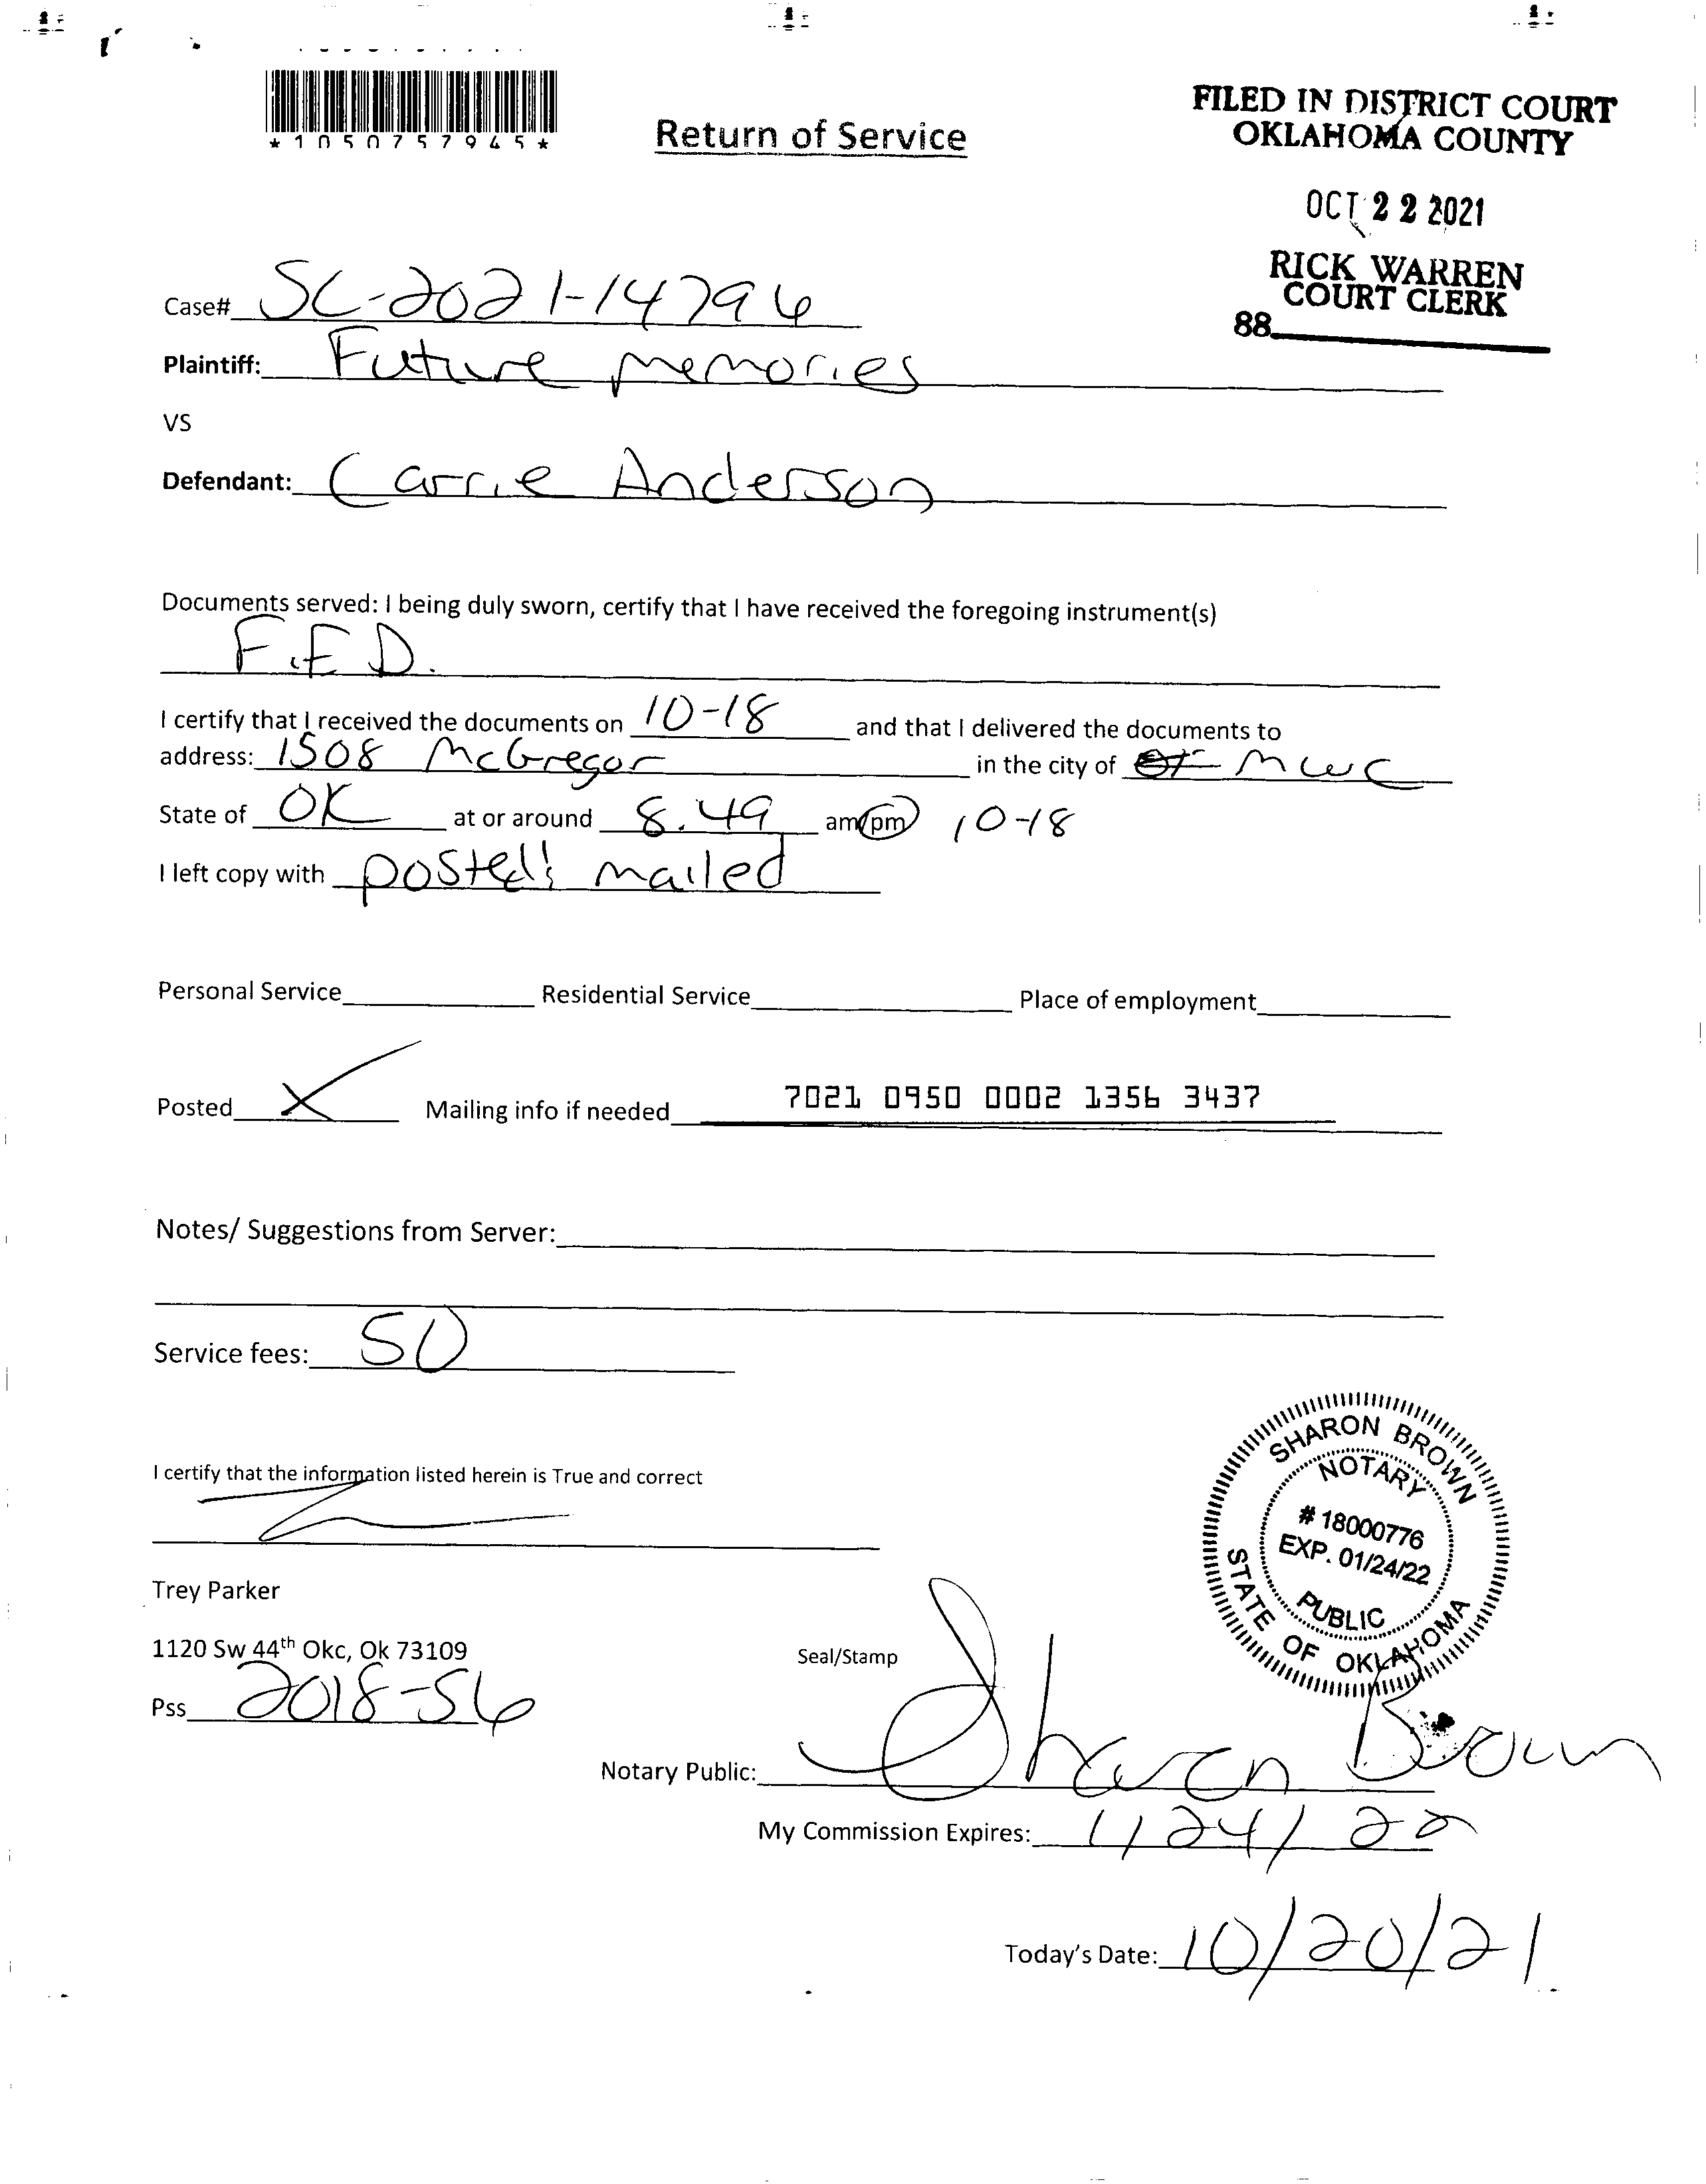 *1050757945*
Return of Service
FILED IN DISTRICT COURT
OKLAHOMA COUNTY
OCT 22 2021
RICK WARREN
COURT CLERK
88
Case# SC-2021-14796
Plaintiff: Future Memories
VS
Defendant: Carrie Anderson
Documents served: I being duly sworn, certify that I have received the foregoing instrument(s)
F.E D.
I certify that I received the documents on 10-18 and that I delivered the documents to
address: 1508 McGregor in the city of MWC
State of OK at or around 8.49 am/pm 10-18
I left copy with posted & mailed
Personal Service Residential Service Place of employment
Posted X Mailing info if needed 7021 0950 0002 1356 3437
Notes/ Suggestions from Server:
Service fees: 50
I certify that the information listed herein is True and correct
Trey Parker
1120 Sw 44th Okc, Ok 73109
Pss 2018-56
SHARON BROWN
NOTARY
# 18000776
EXP. 01/24/22
PUBLIC
STATE OF OKLAHOMA
Seal/Stamp
Notary Public: Sharon Brown
My Commission Expires: 1/24/22
Today's Date: 10/20/21